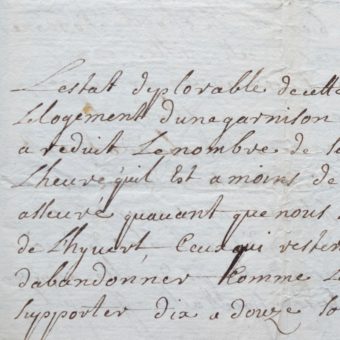 Lestat deplorable decette
Le logement dunegarnison
a reduit Le nombre de
Lheure quil Est a moins de
asseuré quauant que nous
de Lhyuert, Ceux qui rester
dabandonner Comme
Supporter dix a douze